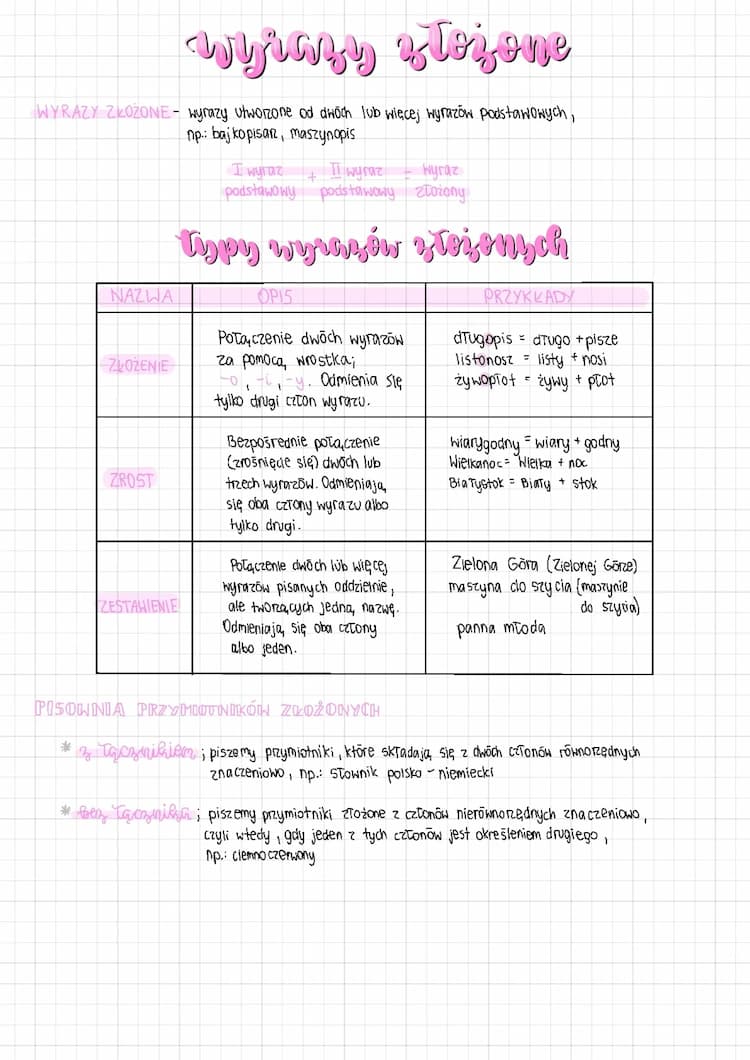 wyrazy złożone
WYRAZY ZŁOŻONE - wyrazy utworzone od dwóch lub więcej wyrazów podstawowych,
np.: bajkopisarz, maszynopis
I wyraz + II wyraz = wyraz
podstawowy podstawowy złożony
typy wyrazów złożonych
NAZWA OPIS PRZYKŁADY
ZŁOŻENIE
Połączenie dwóch wyrazów
za pomocą wrostka;
-o, -i, -y. Odmienia się
tylko drugi człon wyrazu.
długopis = długo + pisze
listonosz = listy + nosi
żywopłot = żywy + płot
ZROST
Bezpośrednie połączenie
(zrośnięcie się) dwóch lub
trzech wyrazów. Odmieniają
się oba człony wyrazu albo
tylko drugi.
wiarygodny = wiary + godny
Wielkanoc = Wielka + noc
Białystok = Biały + stok
ZESTAWIENIE
Połączenie dwóch lub więcej
wyrazów pisanych oddzielnie,
ale tworzących jedną nazwę.
Odmieniają się oba człony
albo jeden.
Zielona Góra (Zielonej Górze)
maszyna do szycia (maszynie
do szycia)
panna młoda
PISOWNIA PRZYMIOTNIKÓW ZŁOŻONYCH
* z łącznikiem; piszemy przymiotniki, które składają się z dwóch członów równorzędnych
znaczeniowo, np.: słownik polsko-niemiecki
* bez łącznika; piszemy przymiotniki złożone z członów nierównorzędnych znaczeniowo,
czyli wtedy, gdy jeden z tych członów jest określeniem drugiego,
np.: ciemnoczerwony